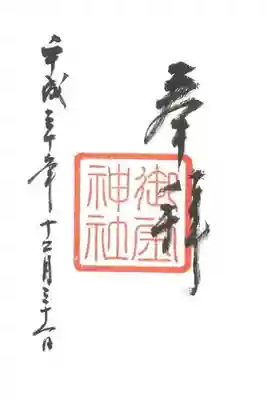 奉拝
御
神社
平成三十年十二月三十一日